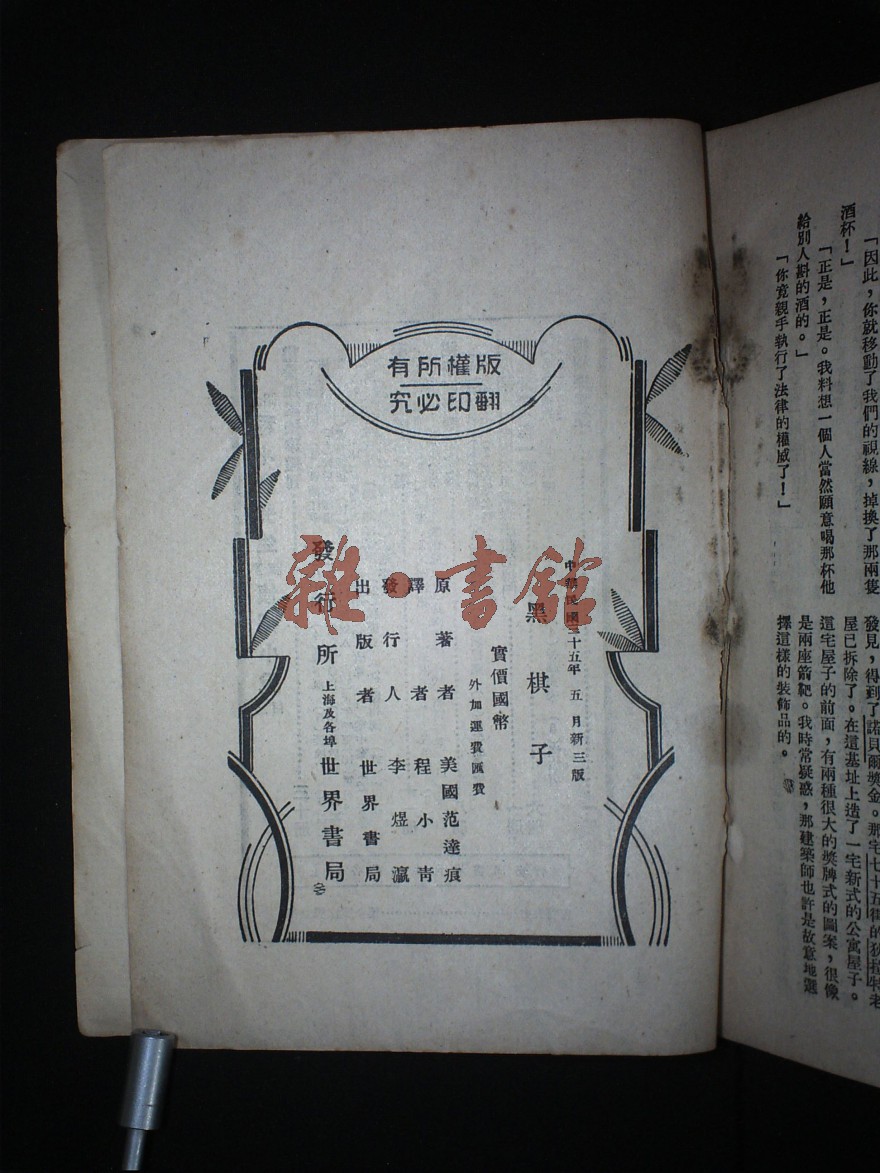 「因此，你就移動了我們的視線，掉換了那兩隻
酒杯！」
「正是，正是。我料想一個人當然願意喝那杯他
給別人斟的酒的。」
「你竟親手執行了法律的權威了！」
發見，得到了諾貝爾獎金。那宅七十五街的狄拉特老
屋已拆除了。在這基址上造了一宅新式的公寓屋子。
這宅屋子的前面，有兩種很大的獎牌式的圖案，很像
是兩座箭靶。我時常疑惑，那建築師也許是故意地選
擇這樣的裝飾品的。
版權所有
翻印必究
中華民國三十五年五月新三版
黑棋子
實價國幣
外加運費匯費
原著者 美國范達痕
譯者 程小青
發行人 李煜瀛
出版者 世界書局
發行所 上海及各埠 世界書局
雜·書館